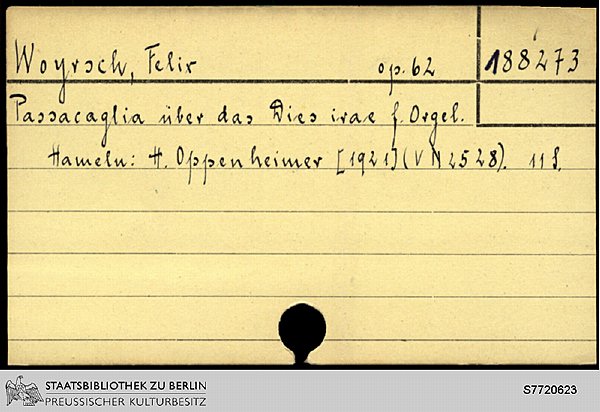 Woyrsch, Felix op. 62 188273
Passacaglia über das Dies irae f. Orgel.
Hameln: H. Oppenheimer [1921] (V N 2528). 11 S.
STAATSBIBLIOTHEK ZU BERLIN
PREUSSISCHER KULTURBESITZ
S7720623